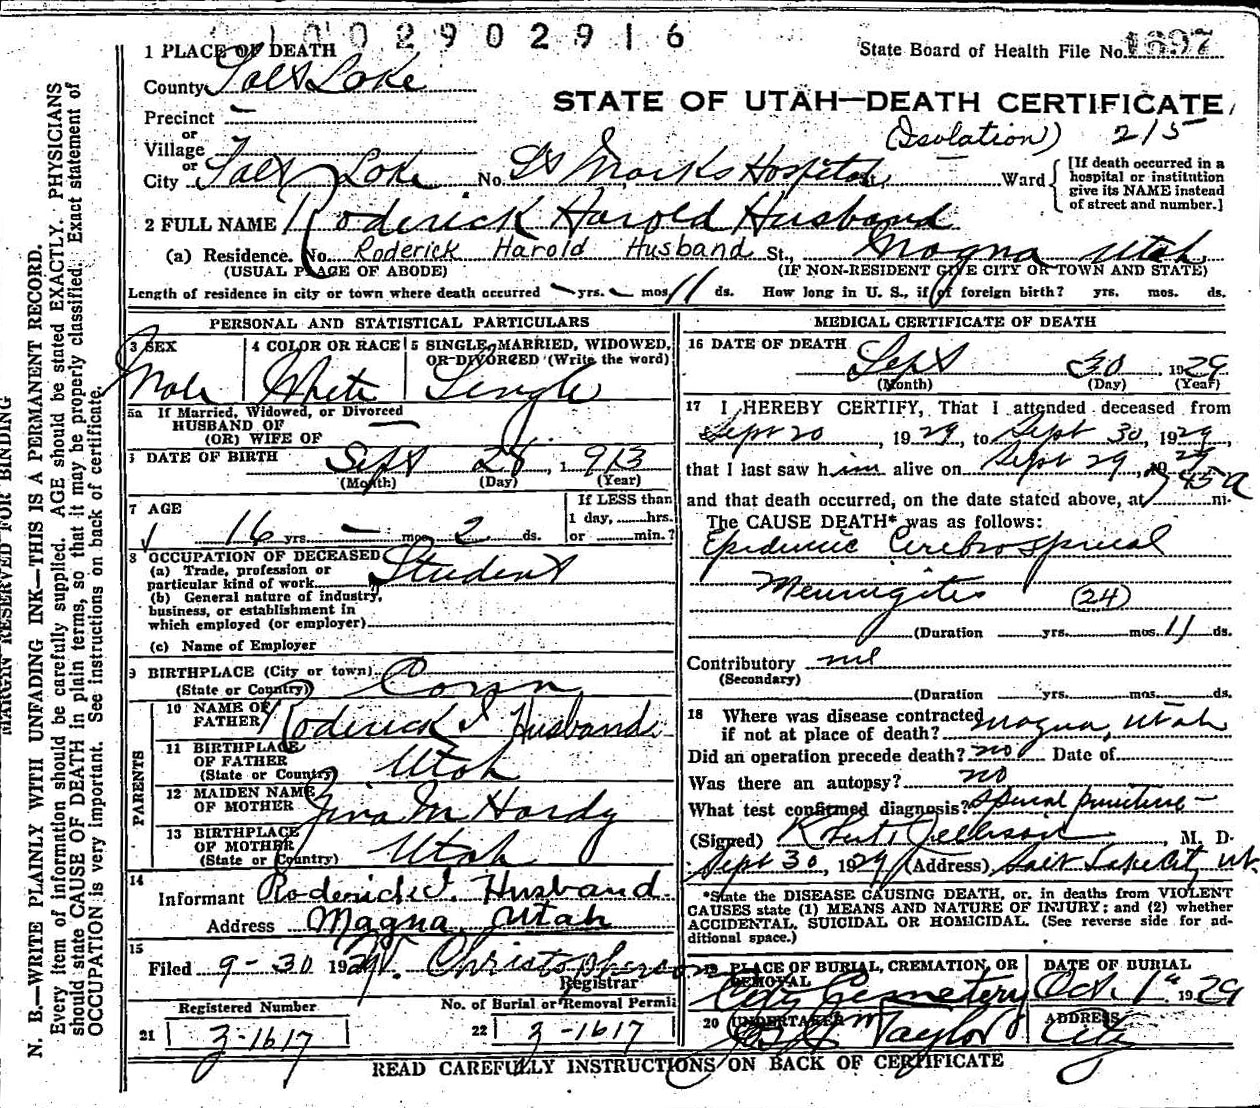 1002902916
State Board of Health File No. 1697
STATE OF UTAH—DEATH CERTIFICATE
(Isolation) 215
1 PLACE OF DEATH
County Salt Lake
Precinct —
or
Village —
or
City Salt Lake No. St Marks Hospital, Ward
[If death occurred in a
hospital or institution
give its NAME instead
of street and number.]
2 FULL NAME Roderick Harold Husband
(a) Residence. No. Roderick Harold Husband St., Magna Utah
(USUAL PLACE OF ABODE) (IF NON-RESIDENT GIVE CITY OR TOWN AND STATE)
Length of residence in city or town where death occurred — yrs. — mos. 11 ds. How long in U. S., if of foreign birth? yrs. mos. ds.
PERSONAL AND STATISTICAL PARTICULARS
3 SEX
Male
4 COLOR OR RACE
White
5 SINGLE, MARRIED, WIDOWED,
OR DIVORCED (Write the word)
Single
5a If Married, Widowed, or Divorced
HUSBAND OF —
(OR) WIFE OF
DATE OF BIRTH Sept 28, 1913
(Month) (Day) (Year)
7 AGE
16 yrs. — mos. 2 ds.
If LESS than
1 day, hrs.
or min.?
8 OCCUPATION OF DECEASED
(a) Trade, profession or
particular kind of work Student
(b) General nature of industry,
business, or establishment in
which employed (or employer)
(c) Name of Employer
9 BIRTHPLACE (City or town)
(State or Country) Conn
PARENTS
10 NAME OF
FATHER Roderick I Husband
11 BIRTHPLACE
OF FATHER
(State or Country) Utah
12 MAIDEN NAME
OF MOTHER M Hardy
13 BIRTHPLACE
OF MOTHER
(State or Country) Utah
14
Informant Roderick I. Husband
Address Magna, Utah
15
Filed 9-30 1929. Christopherson
Registrar
Registered Number
21 3-1617
No. of Burial or Removal Permit
22 3-1617
MEDICAL CERTIFICATE OF DEATH
16 DATE OF DEATH
Sept 30, 1929
(Month) (Day) (Year)
17 I HEREBY CERTIFY, That I attended deceased from
Sept 20, 1929, to Sept 30, 1929,
that I last saw him alive on Sept 29, 1929
and that death occurred, on the date stated above, at 7 45 a m.
The CAUSE DEATH* was as follows:
Epidemic Cerebrospinal
Meningitis (24)
(Duration yrs. mos. 11 ds.
Contributory nil
(Secondary)
(Duration yrs. mos. ds.
18 Where was disease contracted
if not at place of death? Magna, Utah
Did an operation precede death? no Date of
Was there an autopsy? no
What test confirmed diagnosis? spinal puncture —
(Signed) , M. D.
Sept 30, 1929 (Address) Salt Lake City Ut.
*State the DISEASE CAUSING DEATH, or, in deaths from VIOLENT
CAUSES state (1) MEANS AND NATURE OF INJURY; and (2) whether
ACCIDENTAL, SUICIDAL OR HOMICIDAL. (See reverse side for ad-
ditional space.)
19 PLACE OF BURIAL, CREMATION, OR
REMOVAL
City Cemetery
DATE OF BURIAL
Oct 1st 1929
20 UNDERTAKER
Taylor
ADDRESS
City
READ CAREFULLY INSTRUCTIONS ON BACK OF CERTIFICATE
MARGIN RESERVED FOR BINDING
N. B.—WRITE PLAINLY WITH UNFADING INK—THIS IS A PERMANENT RECORD.
Every item of information should be carefully supplied. AGE should be stated EXACTLY. PHYSICIANS
should state CAUSE OF DEATH in plain terms, so that it may be properly classified. Exact statement of
OCCUPATION is very important. See instructions on back of certificate.